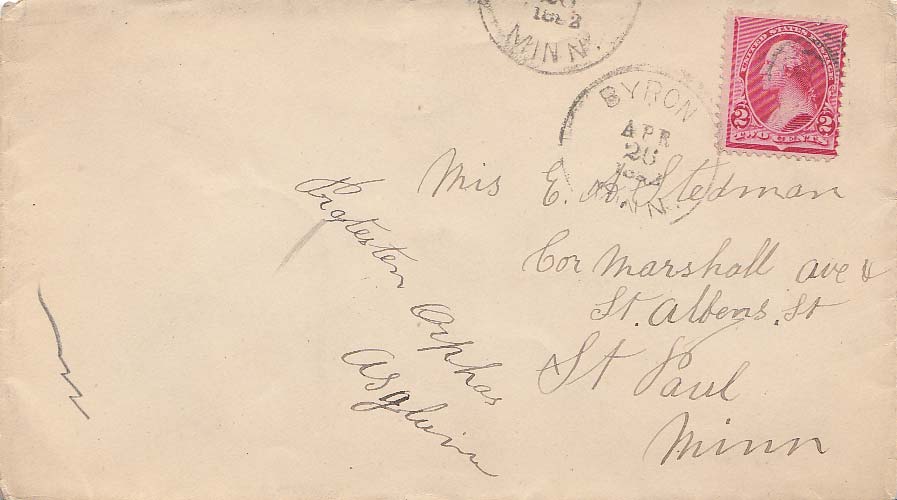 MINN.
UNITED STATES POSTAGE
2 2
TWO CENTS
BYRON
APR
25
MINN.
Mis E. A. Stedman
Cor Marshall ave &
St. Albens. St
St Paul
Minn
Protesten Orphas
Asylum